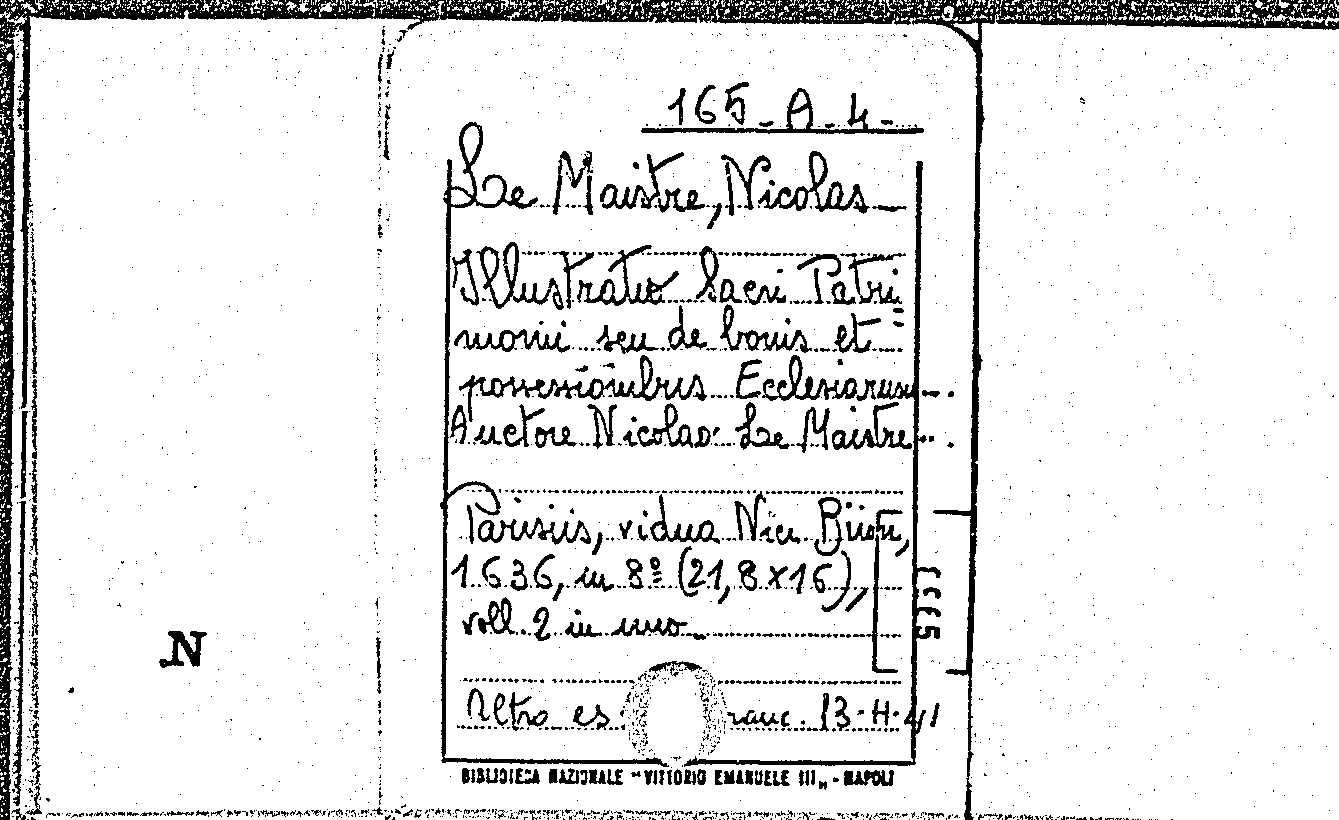 165-A-4-
Le Maistre, Nicolas
Illustratio Sacri Patri=
monii seu de bonis et
possessionibus Ecclesiarum...
Auctore Nicolao Le Maistre...
Parisiis, vidua Nic.
1636, in 8º (21,8x16),
voll. 2 in uno.
Altro es ranc. 13-H-41
BIBLIOTECA NAZIONALE "VITTORIO EMANUELE III„ - NAPOLI
N